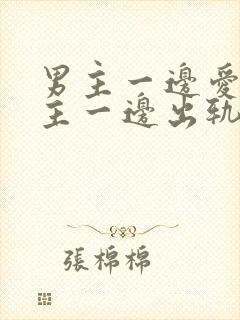 男主一邊愛
主一邊出軌
張棉棉